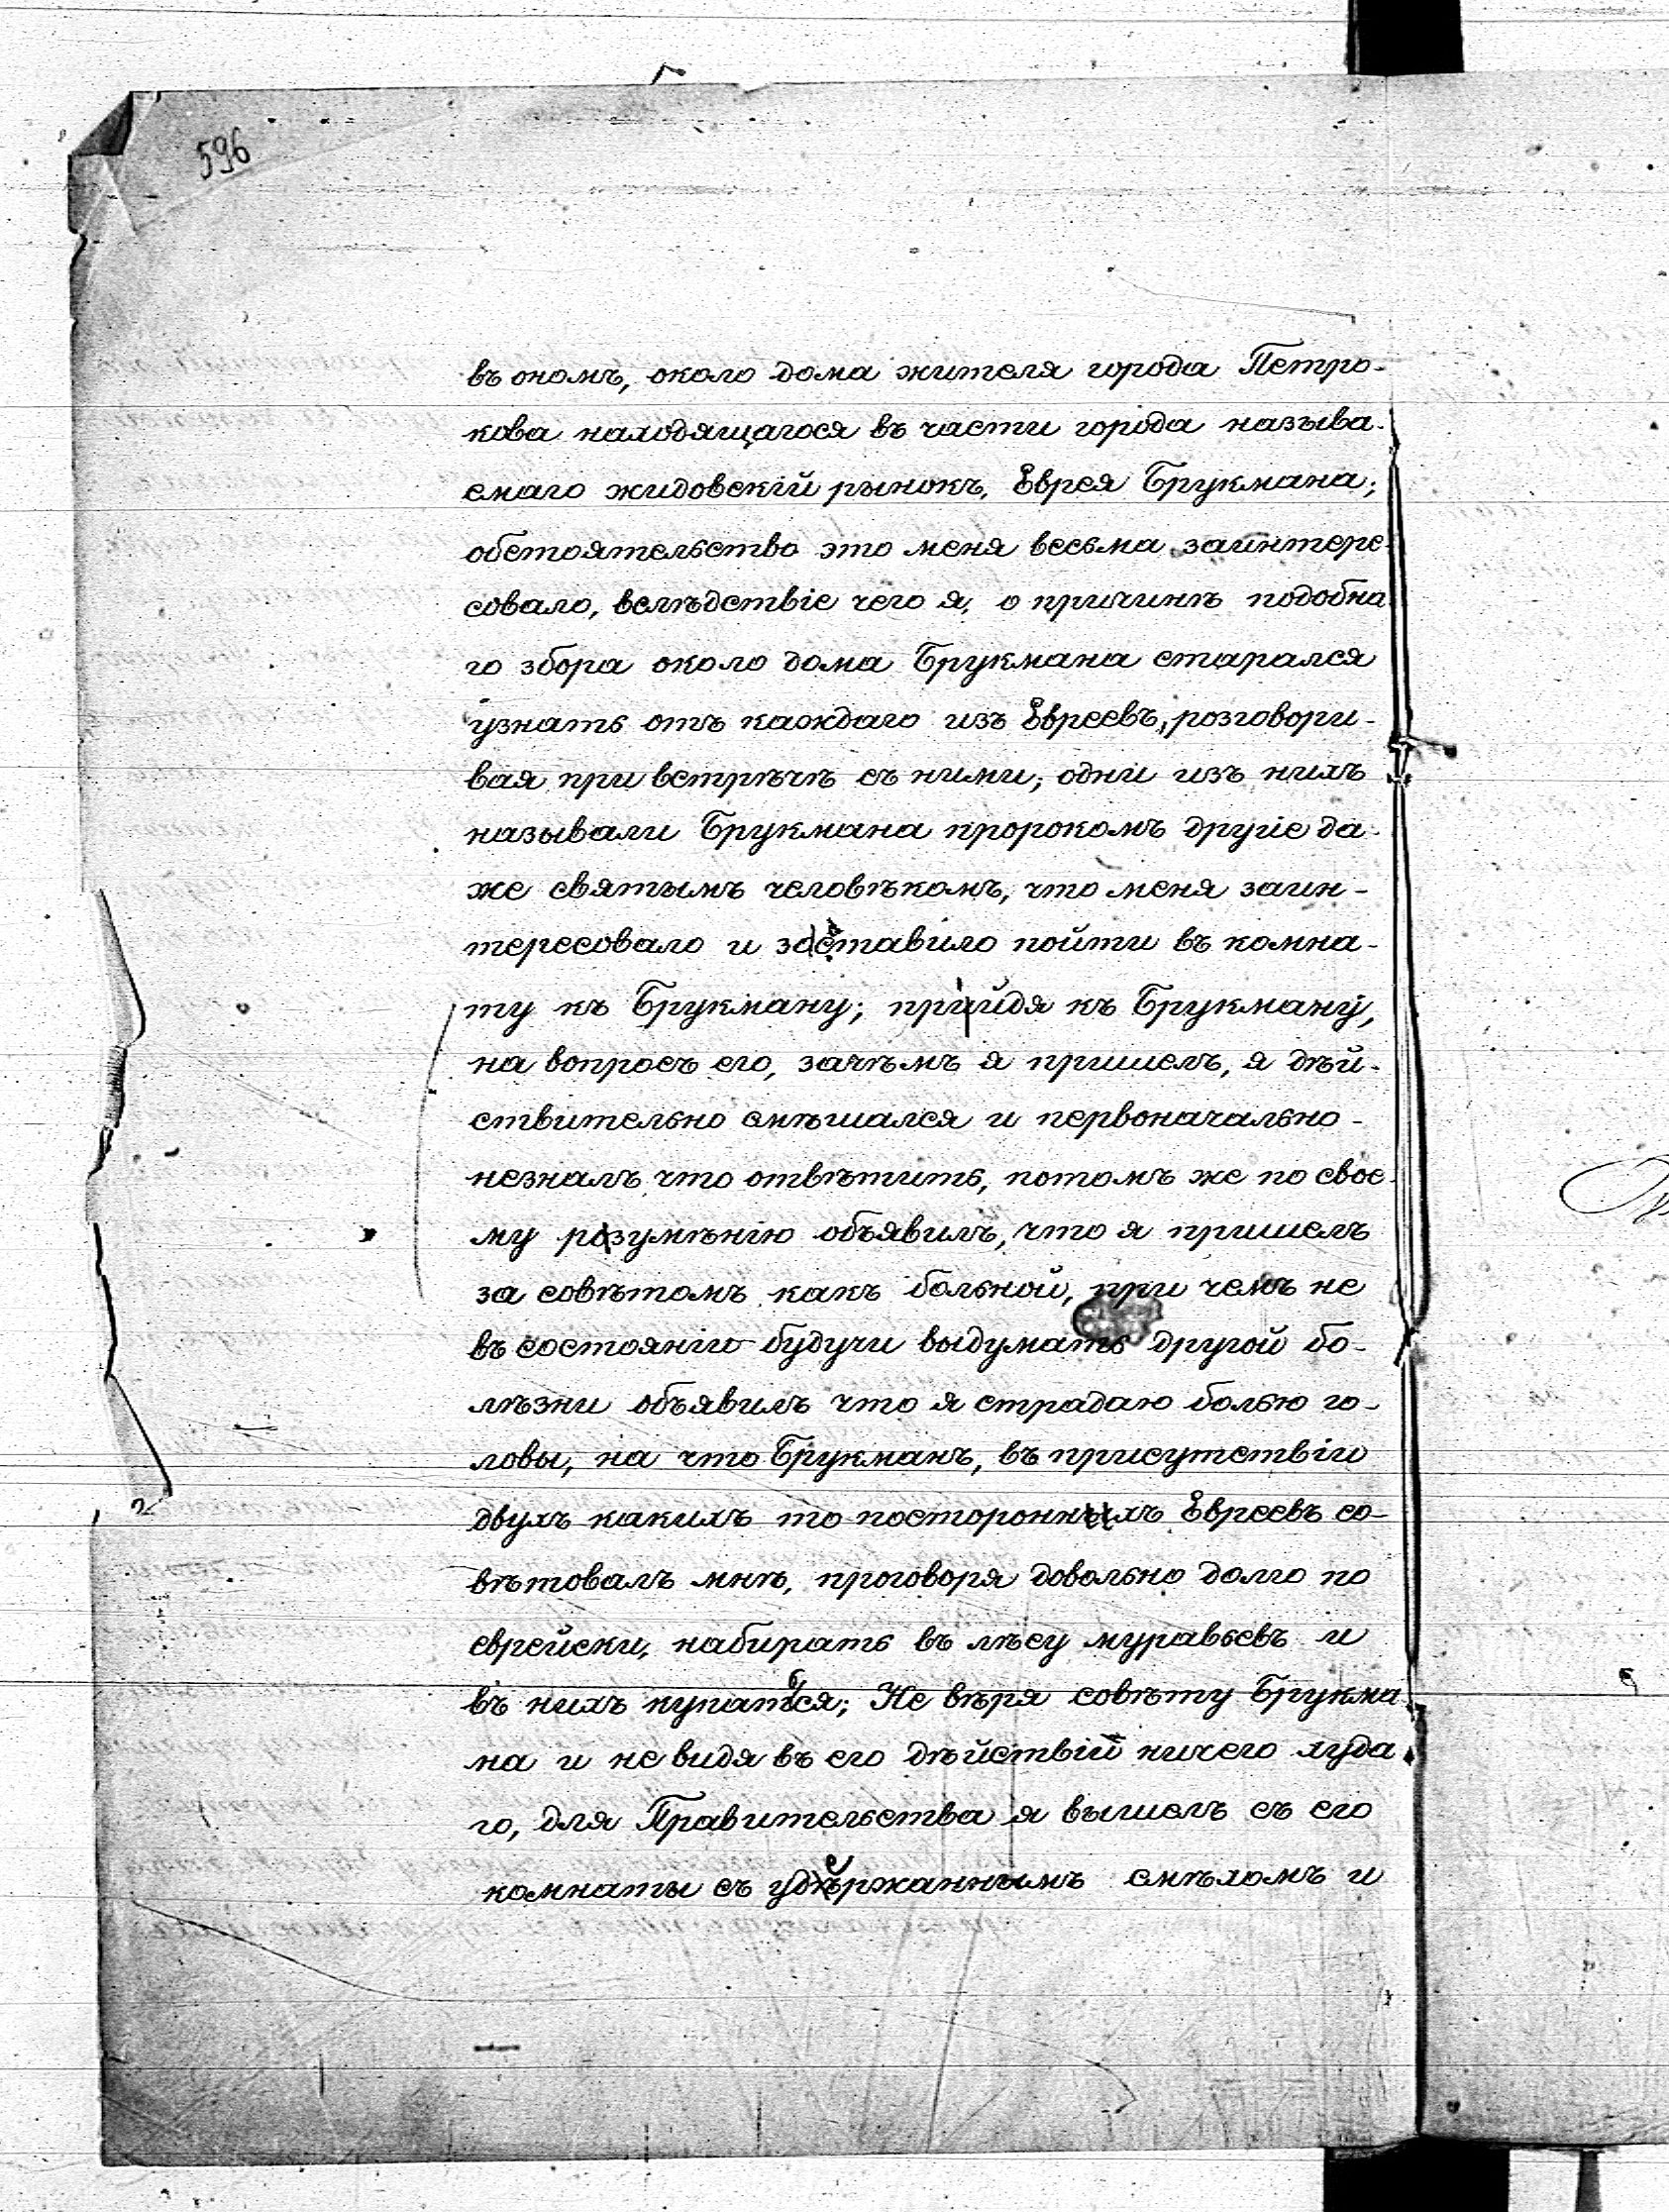 596
въ ономъ, около дома жителя города Петро-
кова находящагося въ части города называ-
емаго жидовскій рынокъ, Еврея Брукмана;
обстоятельство это меня весьма заинтере-
совало, вслѣдствіе чего я, о причинѣ подобна
го збора около дома Брукмана старался
узнать отъ каждаго изъ Евреевъ, розговори-
вая при встрѣчѣ съ ними; одни изъ нихъ
называли Брукмана пророкомъ другіе да-
же святымъ человѣкомъ, что меня заин-
тересовало и заставило пойти въ комна-
ту къ Брукману; прийдя къ Брукману,
на вопросъ его, зачѣмъ я пришелъ, я дѣй-
ствительно смѣшался и первоначально-
незналъ что отвѣтить, потомъ же по свое-
му розумѣнію объявилъ, что я пришелъ
за совѣтомъ какъ больной, при чемъ не
въ состояніи будучи выдумать другой бо-
лѣзни объявилъ что я страдаю болью го-
ловы, на что Брукманъ, въ присутствіи
двухъ какихъ то посторонныхъ Евреевъ со-
вѣтовалъ мнѣ, проговоря довольно долго по
еврейски, набирать въ лѣсу муравьевъ и
въ нихъ купаться; Не вѣря совѣту Брукма
на и не видя въ его дѣйствій ничего худа
го, для Правительства я вышелъ съ его
комнаты съ удержаннымъ смѣхомъ и